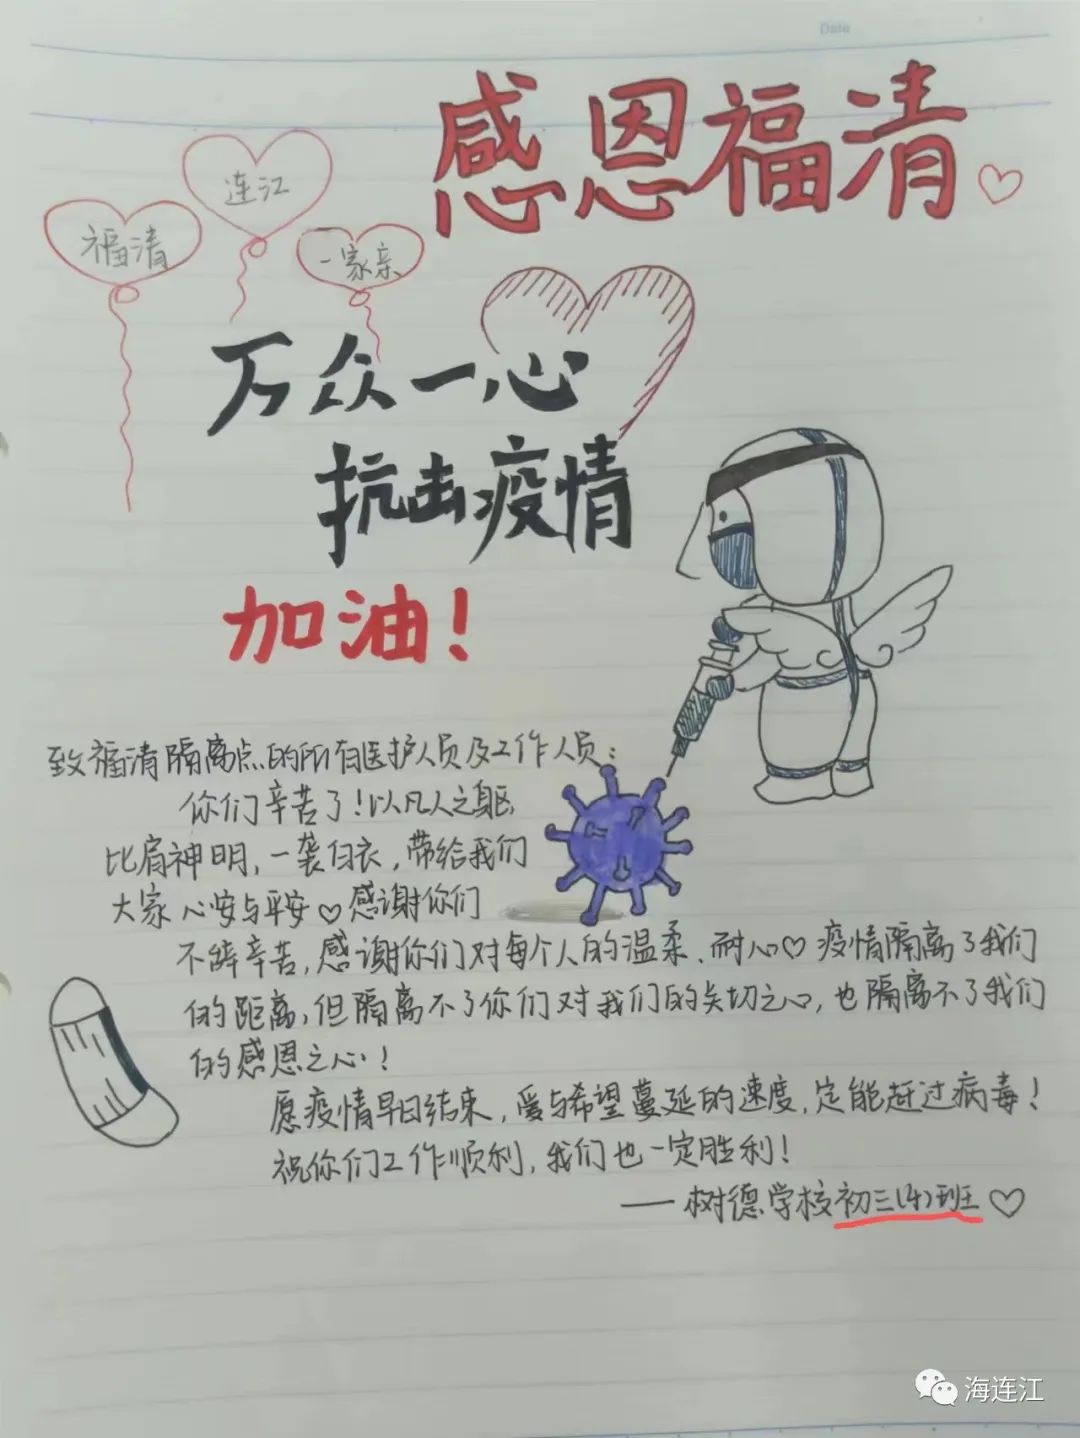 Date
感恩福清
连江
福清
一家亲
万众一心
抗击疫情
加油!
致福清隔离点的所有医护人员及工作人员:
你们辛苦了!以凡人之躯,
比肩神明,一袭白衣,带给我们
大家心安与平安♡感谢你们
不辞辛苦,感谢你们对每个人的温柔、耐心♡疫情隔离了我们
的距离,但隔离不了你们对我们的关切之心,也隔离不了我们
的感恩之心!
愿疫情早日结束,爱与希望蔓延的速度,定能赶过病毒!
祝你们工作顺利,我们也一定胜利!
——树德学校初三(4)班♡
海连江